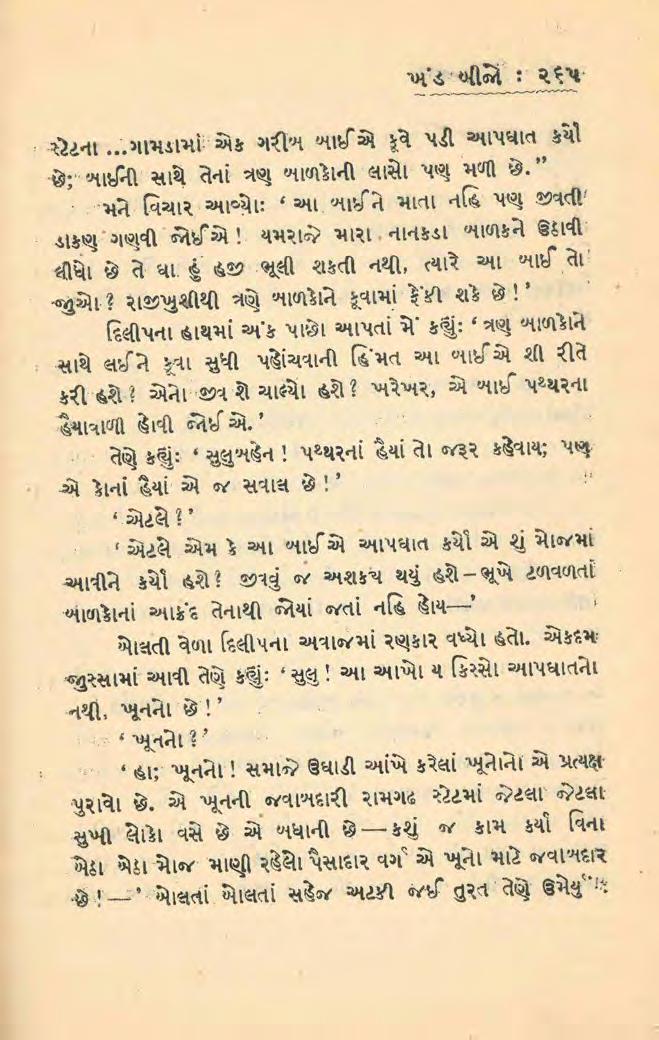 ખંડ બીજો : ૨૬૫
સ્ટેટના ...ગામડામાં એક ગરીબ બાઈએ કૂવે પડી આપઘાત કર્યો
છે; બાઈની સાથે તેનાં ત્રણ બાળકોની લાસો પણ મળી છે.”
મને વિચાર આવ્યોઃ ‘ આ બાઈને માતા નહિ પણ જીવતી
ડાકણ ગણવી જોઈએ ! યમરાજે મારા નાનકડા બાળકને ઉઠાવી
લીધો છે તે ઘા હું હજી ભૂલી શકતી નથી, ત્યારે આ બાઈ તો
જુઓ ? રાજીખુશીથી ત્રણે બાળકોને કૂવામાં ફેંકી શકે છે ! ’
દિલીપના હાથમાં અંક પાછો આપતાં મેં કહ્યુંઃ ‘ ત્રણ બાળકોને
સાથે લઈને કૂવા સુધી પહોંચવાની હિંમત આ બાઈએ શી રીતે
કરી હશે ? એનો જીવ શે ચાલ્યો હશે ? ખરેખર, એ બાઈ પથ્થરના
હૈયાવાળી હોવી જોઈએ. ’
તેણે કહ્યુંઃ ‘ સુલુબહેન ! પથ્થરનાં હૈયાં તો જરૂર કહેવાય; પણ
એ કોનાં હૈયાં એ જ સવાલ છે ! ’
‘ એટલે ? ’
‘ એટલે એમ કે આ બાઈએ આપઘાત કર્યો એ શું મોજમાં
આવીને કર્યો હશે ? જીવવું જ અશક્ય થયું હશે – ભૂખે ટળવળતાં
બાળકોનાં આક્રંદ તેનાથી જોયાં જતાં નહિ હોય—’
બોલતી વેળા દિલીપના અવાજમાં રણકાર વધ્યો હતો. એકદમ
જુસ્સામાં આવી તેણે કહ્યુંઃ ‘ સુલુ ! આ આખો ય કિસ્સો આપઘાતનો
નથી, ખૂનનો છે ! ’
‘ ખૂનનો ? ’
‘ હા; ખૂનનો ! સમાજે ઉઘાડી આંખે કરેલાં ખૂનોનો એ પ્રત્યક્ષ
પુરાવો છે. એ ખૂનની જવાબદારી રામગઢ સ્ટેટમાં જેટલા જેટલા
સુખી લોકો વસે છે એ બધાની છે — કશું જ કામ કર્યા વિના
બેઠા બેઠા મોજ માણી રહેલો પૈસાદાર વર્ગ એ ખૂનો માટે જવાબદાર
છે ! —’ બોલતાં બોલતાં સહેજ અટકી જઈ તુરત તેણે ઉમેર્યુંઃ